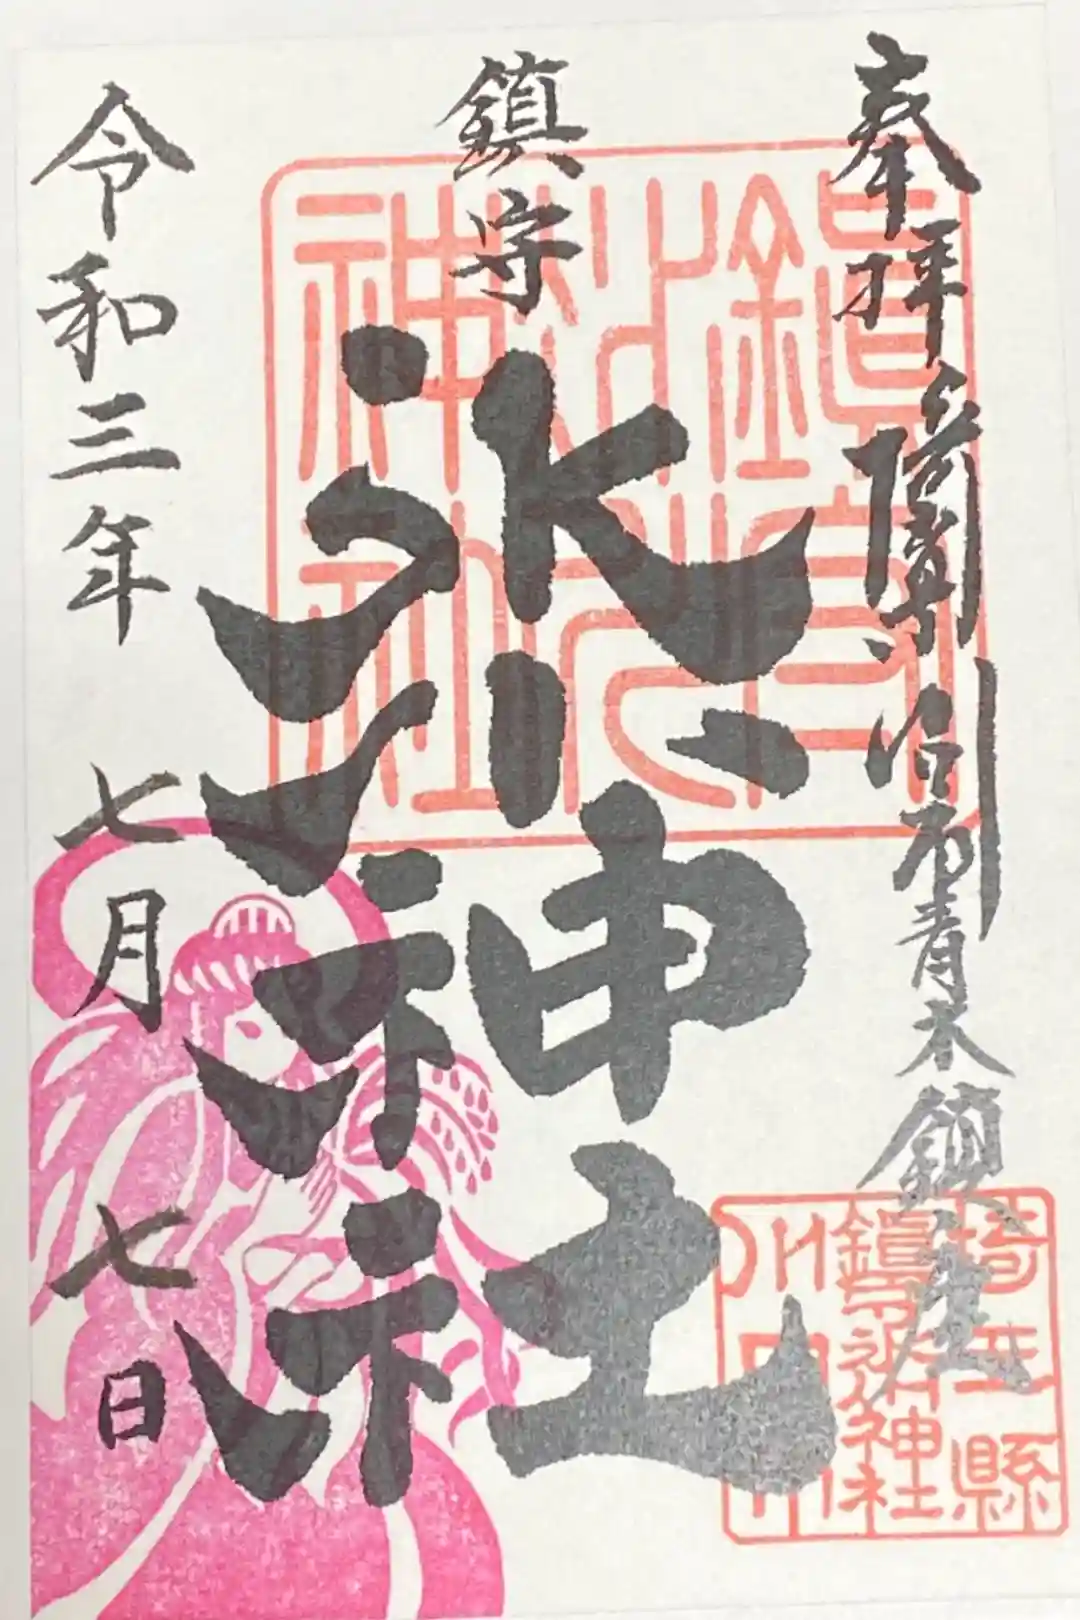 奉拝
川口市青木鎮座
鎮守
氷川神社
令和三年 七月 七日
鎮守
氷川
神社
埼玉縣
鎮守氷川神社
川口